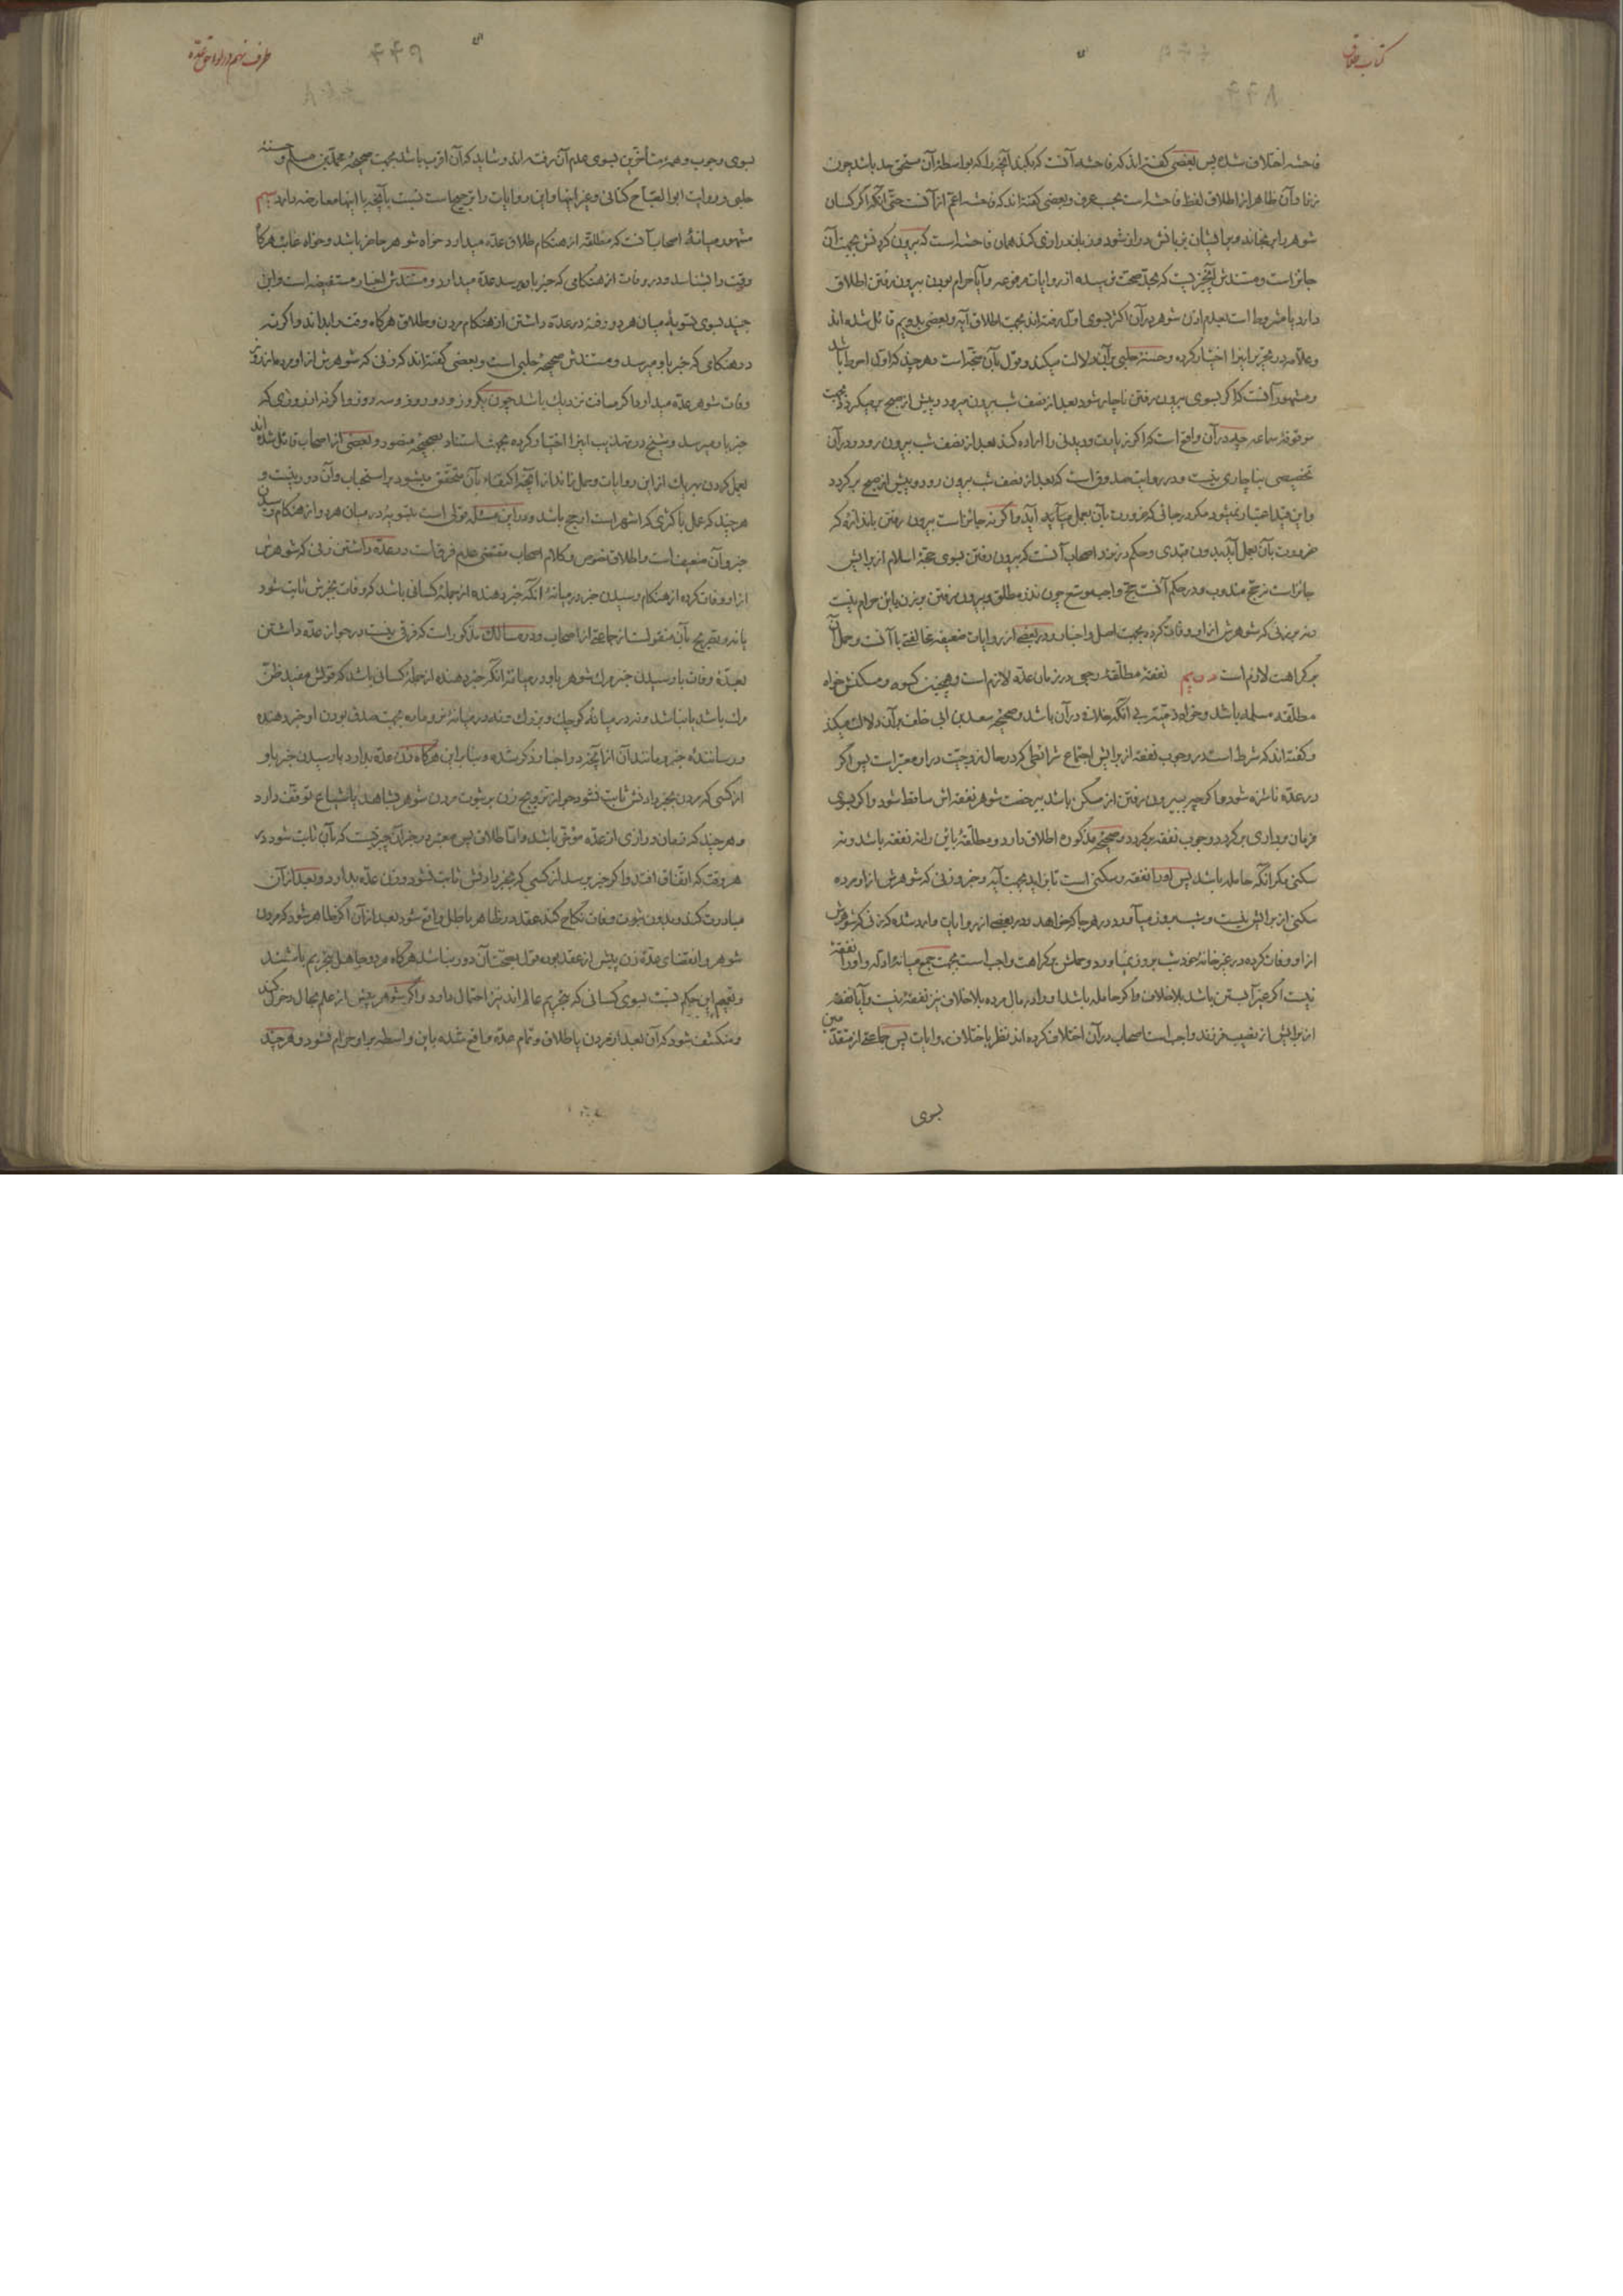 کتاب طلاق
فاحشه اختلاف شده پس بعضی گفته‌اند که فاحشه آنست که بکند آنچه را که بواسطهٔ آن مستحق حد باشد چون
زنا و آن ظاهر از اطلاق لفظ فاحشه است بحسب عرف و بعضی گفته‌اند که فاحشه اعم از آنست حتی آنکه اگر کسان
شوهر را برنجاند و بر ایشان بزبانش دراز شود و زبان درازی کند همان فاحشه است که بیرون کردنش بجهت آن
جایز است و مستندش آنچیزیست که بحد صحت نرسیده از روایات مرفوعه و آیا حرام بودن بیرون رفتن اطلاق
دارد یا مشروط است بعدم اذن شوهر در آن اکثر بسوی اول رفته‌اند بجهت اطلاق آیه و بعضی بدویم قائل شده‌اند
و علامه در تحریر اینرا اختیار کرده و حسنهٔ حلبی بر آن دلالت میکند و قول بآن متجه است و هر چند که اول احوط باشد
و مشهور آنست که اگر بسوی بیرون رفتن ناچار شود بعد از نصف شب بیرون میرود و پیش از صبح بر میگردد بجهت
موقوفهٔ سماعه در آن واقع است که اگر زیارت و دیدنی را اراده کند بعد از نصف شب بیرون رود و در آن
تخصیصی بناچاری نیست و در روایت صدوق است که بعد از نصف شب بیرون رود و پیش از صبح بر گردد
و این قید اعتبار نمیشود مگر در جائی که ضرورت بآن بعمل میآید و اگر نه جایز است بیرون رفتن باندازهٔ که
ضرورت بآن بعمل آید بدون قیدی و حکم در نزد اصحاب آنست که بیرون رفتن بسوی حجة اسلام از برایش
جایز است نه حج مندوب و در حکم آنست حج واجب موسع چون نذر مطلق و بیرون رفتن بر زن باین حرام نیست
و نه بر زنی که شوهرش از او وفات کرده بجهت اصل و اخبار و در بعضی از روایات ضعیفه مخالفتی با آنست و حمل آن
بر کراهت لازم است دویم نفقهٔ مطلقهٔ رجعی در زمان عده لازم است و همچنین کسوه و مسکنش خواه
مطلقه مسلمه باشد و خواه ذمیه بی آنکه خلافی در آن باشد و صحیحهٔ سعد بن ابی خلف بر آن دلالت میکند
و گفته‌اند که شرط است در وجوب نفقه از برایش اجتماع شرائطی که در حال زوجیت در او معتبر است پس اگر
در عده ناشزه شود و اگر چه ببیرون رفتن از مسکن باشد بی رخصت شوهر نفقه‌اش ساقط شود و اگر بسوی
فرمان برداری بر گردد وجوب نفقه بر گردد و صحیحهٔ مذکوره اطلاق دارد و مطلقهٔ باین را نه نفقه باشد و نه
سکنی مگر آنکه حامله باشد پس او را نفقه و سکنی است تا بزاید بجهت آیه و خبر و زنی که شوهرش از او مرده
سکنی از برایش نیست و شب بروز میآورد در هر جا که خواهد و در بعضی از روایات وارد شده که زنی که شوهرش
از او وفات کرده در غیر خانهٔ خود شب بروز نیاورد و حملش بر کراهت واجب است بجهت جمع میانهٔ ادله و او را نفقهٔ
نیست اگر غیر آبستن باشد بلا خلاف و اگر حامله باشد او را در مال مرده بلا خلاف نیز نفقهٔ نیست و آیا نفقه
از برایش از نصیب فرزند واجب است اصحاب در آن اختلاف کرده‌اند نظر باختلاف روایات پس جماعتی از متقدمین
بسوی
طرف نهم در لواحق عده
بسوی وجوب و همهٔ متأخرین بسوی عدم آن رفته‌اند و شاید که آن اقرب باشد بجهت صحیحهٔ محمد بن مسلم و حسنهٔ
حلبی و روایت ابو الصباح کنانی و غیر اینها و این روایات را ترجیحهاست نسبت بآنچه با اینها معارضه دارد سیم
مشهور میانهٔ اصحاب آنست که مطلقه از هنگام طلاق عده میدارد خواه شوهر حاضر باشد و خواه غایب هرگاه
وقت را بشناسد و در وفات از هنگامی که خبر باو برسد عده میدارد و مستندش اخبار مستفیضه است و ابن
جنید بسوی تسویهٔ میان هر دو رفته در عده داشتن از هنگام مردن و طلاق هرگاه وقت را بداند و اگر نه
در هنگامی که خبر باو میرسد و مستندش صحیحهٔ حلبی است و بعضی گفته‌اند که زنی که شوهرش از او مرده از روز
وفات شوهر عده میدارد اگر مسافت نزدیک باشد چون یکروز و دو روز و سه روز و اگر نه از روزی که
خبر باو میرسد و شیخ در تهذیب اینرا اختیار کرده بجهت استناد بصحیحهٔ منصور و بعضی از اصحاب قائل شده‌اند
بعمل کردن بهر یک از این روایات و حمل زائد از آنچه اکتفا بآن متحقق میشود بر استحباب و آن دور نیست و
هر چند که عمل باکثری که اشهر است ارجح باشد و در این مسئله قولی است بتسویهٔ در میان هر دو از هنگام رسیدن
خبر و آن ضعیف است و اطلاق نصوص و کلام اصحاب مقتضی عدم فرق است در عده داشتن زنی که شوهرش
از او وفات کرده از هنگام رسیدن خبر در میانهٔ آنکه خبر دهنده از جمله کسانی باشد که وفات بخبرش ثابت شود
یا نه و تصریح بآن منقول است از جماعتی از اصحاب و در مسالک مذکور است که فرقی نیست در جواز عده داشتن
بعدهٔ وفات با رسیدن خبر مرگ شوهر باو در میانهٔ آنکه خبر دهنده از جملهٔ کسانی باشد که قولش مفید ظن
مرگ باشد یا نباشد و نه در میانهٔ کوچک و بزرگ و نه در میانهٔ نر و ماده بجهت صدق بودن او خبر دهنده
و رسانندهٔ خبر و مانند آن از آنچه در اخبار ذکر شده و بنا بر این هرگاه زن عده بدارد با رسیدن خبر باو
از کسی که مردن بخبر دادنش ثابت نشود جواز تزویج زن بر ثبوت مردن شوهر بشاهد یا شیاع توقف دارد
و هر چند که زمان درازی از عده مؤخر باشد و اما طلاق پس معتبر در خبر آن چیزیست که بآن ثابت شود در
هر وقت که اتفاق افتد و اگر خبر برسد از کسی که بخبر دادنش ثابت نشود و زن عده بدارد و بعد از آن
مبادرت کند و بدون ثبوت وفات نکاح کند عقد در ظاهر باطل واقع شود بعد از آن اگر ظاهر شود که مردن
شوهر و انقضای مدهٔ زن پیش از عقد بوده قول بصحت آن دور نباشد هرگاه هر دو جاهل بتحریم باشند
و تعمیم این حکم نسبت بسوی کسانی که بتحریم عالم‌اند نیز احتمال دارد و اگر شوهر پیش از علم بحال دخول کند
و منکشف شود که آن بعد از مردن یا طلاق و تمام عده واقع شده باین واسطه بر او حرام نشود و هر چند